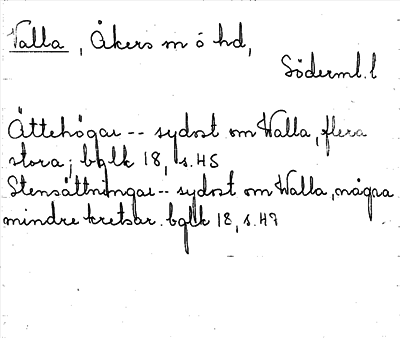 Valla, Åkers m ö hd,
Söderml. l
Ättehögar -- sydost om Walla, flera
stora; bglk 18, s. 45
Stensättningar -- sydost om Walla, några
mindre kretsar. bglk 18, s. 47